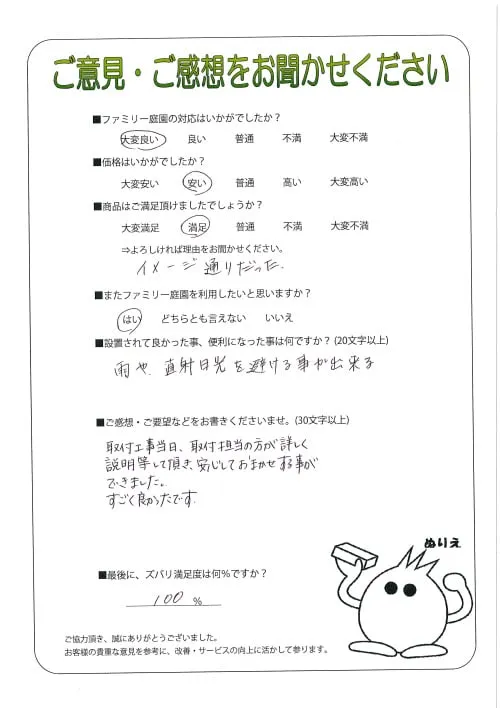 ご意見・ご感想をお聞かせください
■ファミリー庭園の対応はいかがでしたか？
大変良い 良い 普通 不満 大変不満
■価格はいかがでしたか？
大変安い 安い 普通 高い 大変高い
■商品はご満足頂けましたでしょうか？
大変満足 満足 普通 不満 大変不満
⇒よろしければ理由をお聞かせください。
イメージ通りだった。
■またファミリー庭園を利用したいと思いますか？
はい どちらとも言えない いいえ
■設置されて良かった事、便利になった事は何ですか？(20文字以上)
雨や直射日光を避ける事が出来る
■ご感想・ご要望などをお書きくださいませ。(30文字以上)
取付工事当日、取付担当の方が詳しく
説明等して頂き、安心しておまかせする事が
できました。
すごく良かったです。
ぬりえ
■最後に、ズバリ満足度は何%ですか？
100 %
ご協力頂き、誠にありがとうございました。
お客様の貴重な意見を参考に、改善・サービスの向上に活かして参ります。